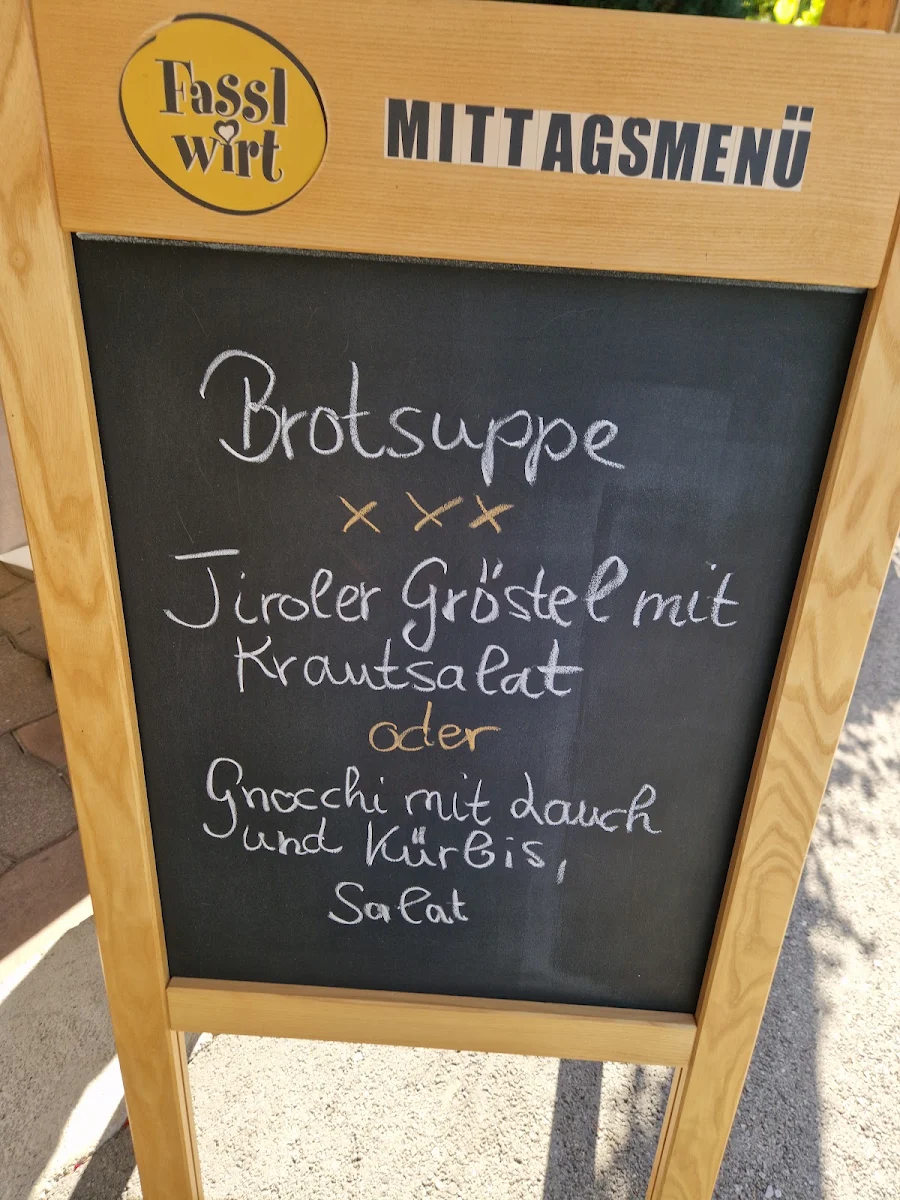 Fassl
wirt
MITTAGSMENÜ
Brotsuppe
x x x
Tiroler Gröstel mit
Krautsalat
oder
Gnocchi mit Lauch
und Kürbis,
Salat